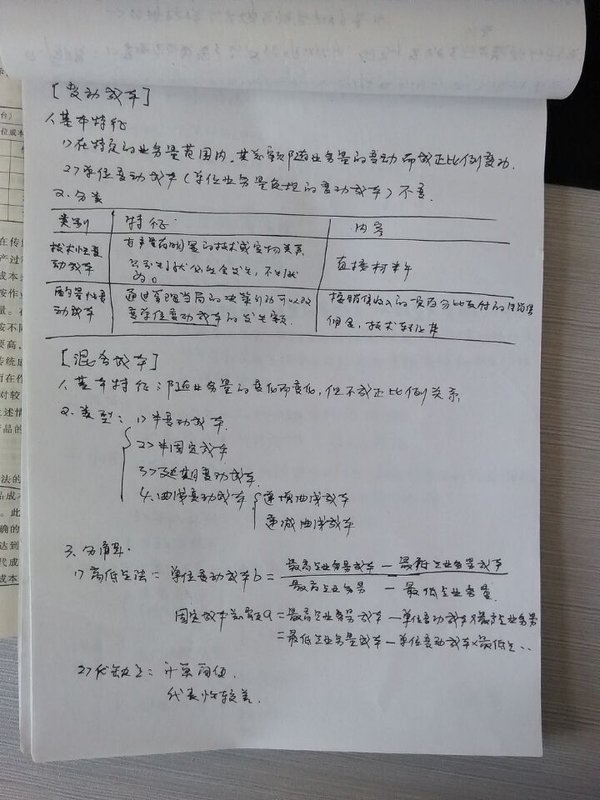 [变动成本]
1.基本特征
1>在特定的业务量范围内，其总额随业务量的变动而成正比例变动.
2>单位变动成本(单位业务量负担的变动成本)不变.
2.分类
类别 特征 内容
技术性变动成本 有明显的技术或实物关系 直接材料
酌量性变动成本 通过管理当局的决策行动可以改变单位变动成本的发生额 按销售收入的一定百分比支付的销售佣金，技术转让费
[混合成本]
1.基本特征：随业务量的变化而变化，但不成正比例关系.
2.类型：1>半变动成本.
2>半固定成本
3>延期变动成本.
4.曲线变动成本 递增曲线成本
递减曲线成本
3.分解：
1>高低点法：单位变动成本b=最高点业务量成本-最低点业务量成本
最高点业务量-最低点业务量
固定成本总额a=最高点业务量成本-单位变动成本×最高点业务量
=最低点业务量成本-单位变动成本×最低点…
2>优缺点：计算简便
代表性较差.